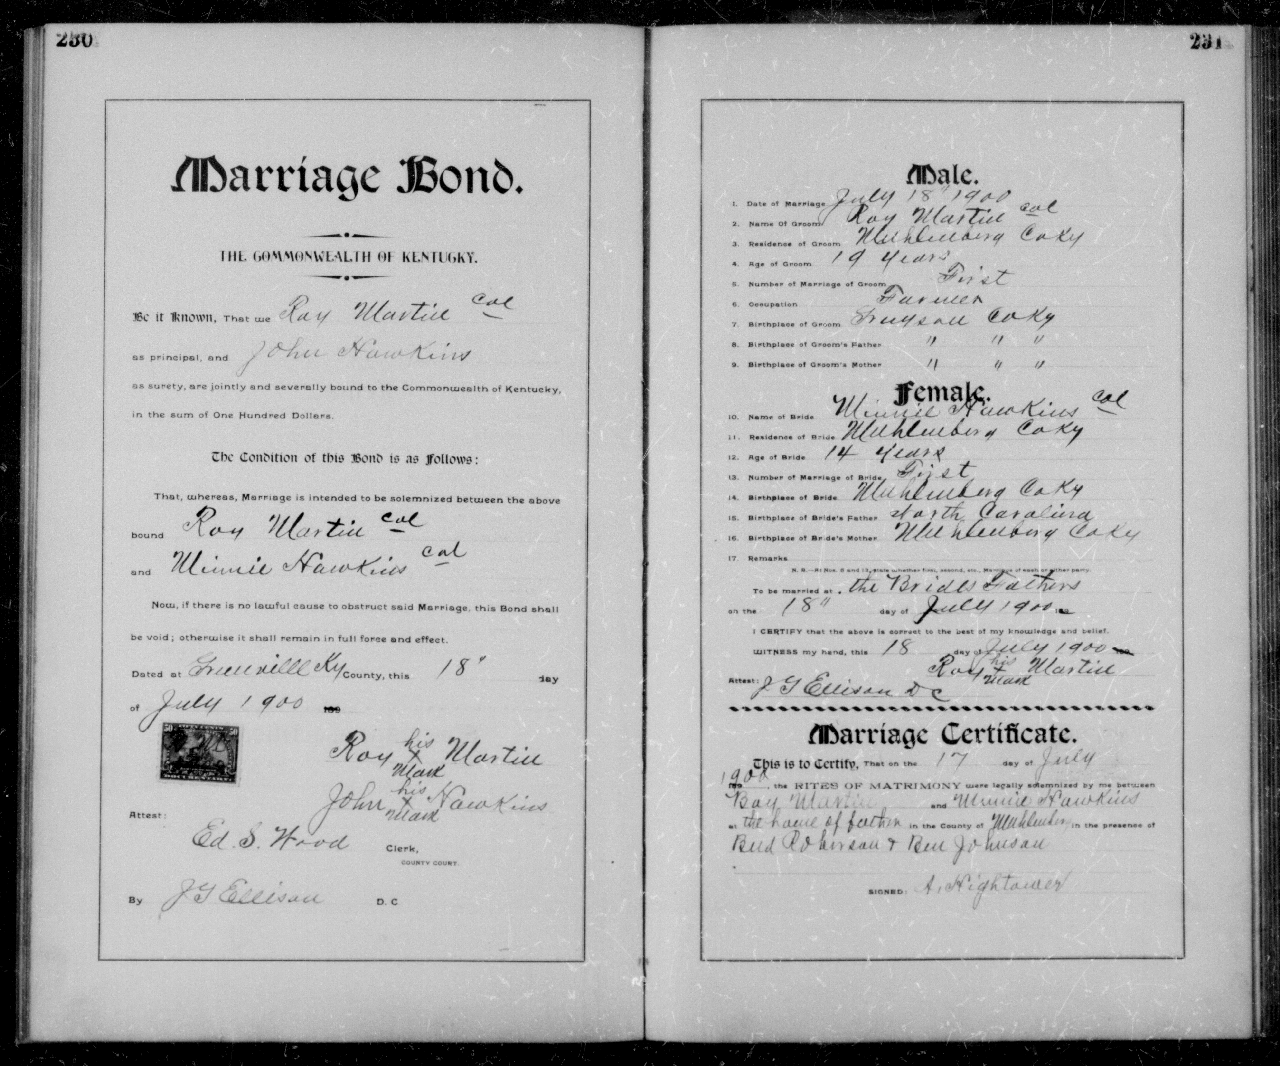 230
Marriage Bond.
THE COMMONWEALTH OF KENTUCKY.
Be it Known, That we Roy Martin col
as principal, and John Hawkins
as surety, are jointly and severally bound to the Commonwealth of Kentucky,
in the sum of One Hundred Dollars.
The Condition of this Bond is as Follows:
That, whereas, Marriage is intended to be solemnized between the above
bound Roy Martin col
and Minnie Hawkins col
Now, if there is no lawful cause to obstruct said Marriage, this Bond shall
be void; otherwise it shall remain in full force and effect.
Dated at Greenville Ky County, this 18" day
of July 1900 189
Roy his x mark Martin
John his x mark Hawkins
Attest:
Ed. S. Wood Clerk,
COUNTY COURT.
By J G Ellison D. C
50 50
DOCUMENTARY
231
Male.
1. Date of Marriage July 18" 1900
2. Name Of Groom Roy Martin col
3. Residence of Groom Muhlenberg Co Ky
4. Age of Groom 19 years
5. Number of Marriage of Groom First
6. Occupation Farmer
7. Birthplace of Groom Grayson Co Ky
8. Birthplace of Groom's Father " " "
9. Birthplace of Groom's Mother " " "
Female.
10. Name of Bride Minnie Hawkins col
11. Residence of Bride Muhlenberg Co Ky
12. Age of Bride 14 years
13. Number of Marriage of Bride First
14. Birthplace of Bride Muhlenberg Co Ky
15. Birthplace of Bride's Father North Carolina
16. Birthplace of Bride's Mother Muhlenberg Co Ky
17. Remarks
N. B.—At Nos. 5 and 13, state whether first, second, etc., Marriage of each or either party.
To be married at the Brides Fathers
on the 18" day of July 1900 189
I CERTIFY that the above is correct to the best of my knowledge and belief.
WITNESS my hand, this 18 day of July 1900 189
Roy his x mark Martin
Attest: J G Ellison D C
Marriage Certificate.
This is to Certify, That on the 17 day of July
1900 189 , the RITES OF MATRIMONY were legally solemnized by me between
Roy Martin and Minnie Hawkins
at the home of father in the County of Muhlenberg in the presence of
Bud Roberson & Ben Johnson
SIGNED: A. Hightower